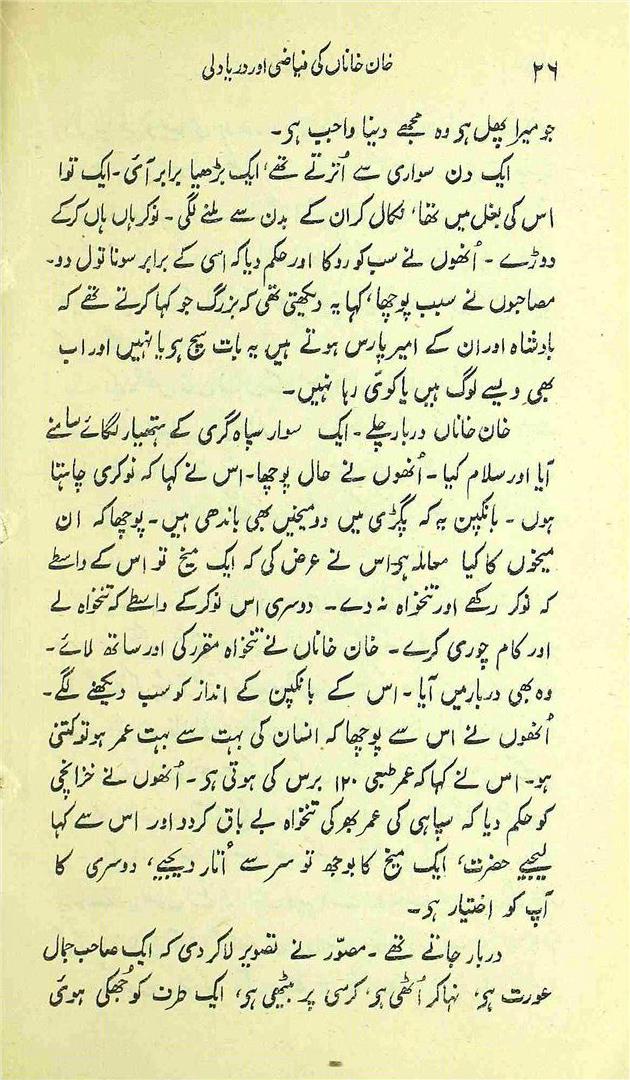 ۲۶ خان خاناں کی فیاضی اور دریا دلی
جو میرا پھل ہو وہ مجھے دینا واجب ہو۔
ایک دن سواری سے اُترتے تھے، ایک بڑھیا برابر آئی۔ ایک توا
اس کی بغل میں تھا، نکال کر ان کے بدن سے ملنے لگی۔ نوکر ہاں ہاں کر کے
دوڑے۔ اُنھوں نے سب کو روکا اور حکم دیا کہ اسی کے برابر سونا تول دو۔
مصاحبوں نے سبب پوچھا، کہا یہ دیکھتی تھی کہ بزرگ جو کہا کرتے تھے کہ
بادشاہ اور ان کے امیر پارس ہوتے ہیں یہ بات سچ ہو یا نہیں اور اب
بھی ویسے لوگ ہیں یا کوئی رہا نہیں۔
خان خاناں دربار چلے۔ ایک سوار سپاہ گری کے ہتھیار لگائے سامنے
آیا اور سلام کیا۔ اُنھوں نے حال پوچھا۔ اس نے کہا کہ نوکری چاہتا
ہوں۔ بانکپن یہ کہ پگڑی میں دو میخیں بھی باندھی ہیں۔ پوچھا کہ ان
میخوں کا کیا معاملہ ہو اس نے عرض کی کہ ایک میخ تو اس کے واسطے
کہ نوکر رکھے اور تنخواہ نہ دے۔ دوسری اس نوکر کے واسطے کہ تنخواہ لے
اور کام چوری کرے۔ خان خاناں نے تنخواہ مقرر کی اور ساتھ لائے۔
وہ بھی دربار میں آیا۔ اس کے بانکپن کے انداز کو سب دیکھنے لگے۔
اُنھوں نے اس سے پوچھا کہ انسان کی بہت سے بہت عمر ہو تو کتنی
ہو۔ اس نے کہا کہ عمر طبعی ۱۲۰ برس کی ہوتی ہو۔ اُنھوں نے خزانچی
کو حکم دیا کہ سپاہی کی عمر بھر کی تنخواہ بے باق کر دو اور اس سے کہا
لیجیے حضرت، ایک میخ کا بوجھ تو سر سے اُتار دیجیے، دوسری کا
آپ کو اختیار ہو۔
دربار جاتے تھے۔ مصوّر نے تصویر لا کر دی کہ ایک صاحب جمال
عورت ہو، نہا کر اُٹھی ہو، کرسی پر بیٹھی ہو، ایک طرف کو جُھکی ہوئی